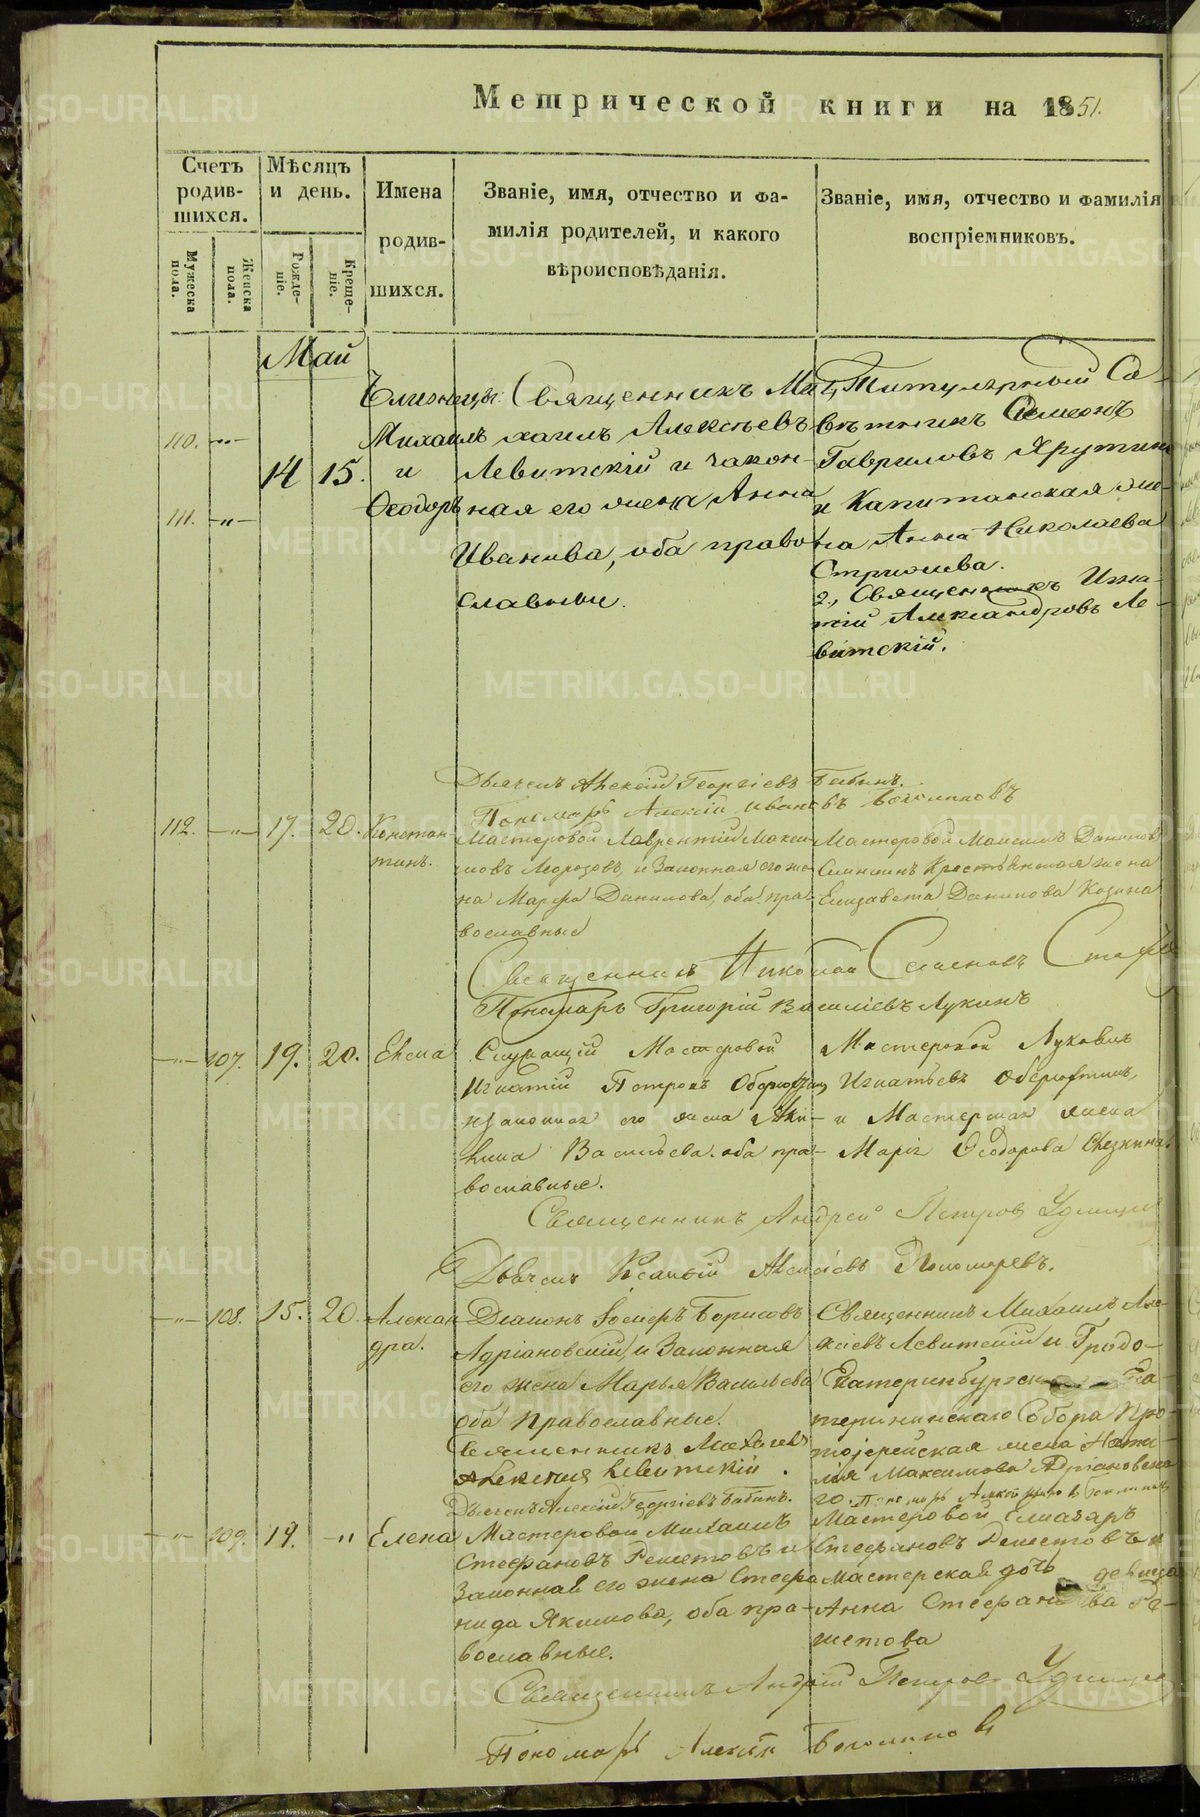 Метрической книги на 1851.
Счетъ родив-шихся.
Мѣсяцъ и день.
Имена родив-шихся.
Званіе, имя, отчество и фа-
милія родителей, и какого
вѣроисповѣданія.
Званіе, имя, отчество и фамилія
воспріемниковъ.
Мужеска пола.
Женска пола.
Рожде-ніе.
Креще-ніе.
Май
110.
111.
14
15.
Близнецы:
Михаилъ
и
Ѳеодоръ
Священникъ Ми-
хаилъ Алексѣевъ
Левитскій и закон-
ная его жена Анна
Иванова, оба право
славные.
1, Титулярный Со-
вѣтникъ Симеонъ
Гавриловъ
и Капитанская же-
на Анна Николаева
2, Священникъ Игна-
тій Александровъ Ле-
витскій.
Дьячекъ Алексій Георгіевъ Бабинъ.
Пономарь Алексій Ивановъ
112.
17.
20.
Констан-
тинъ.
Мастеровой Лаврентій Макси-
мовъ Морозовъ, и Законная его же-
на Марфа Данилова, оба пра-
вославные
Мастеровой Максимъ Данилов
Крестьянская жена
Елизавета Данилова Козина
Священникъ Николай
Пономарь Григорій Василіевъ Лукинъ
107.
19.
20.
Елена
Служащій Мастеровой
Игнатій Петровъ
и законная его жена Аки-
лина Васильева. оба пра-
вославные.
Мастеровой
Игнатьевъ
и Мастерская жена
Марія Ѳеодорова
Священникъ Андрей Петров
Дьячекъ Алексіевъ Пономаревъ.
108.
15.
20.
Алексан
дра.
Діаконъ Борисовъ
Адріановскій, и Законная
его жена Марья Васильева
оба православные.
Священникъ Михаилъ Але-
ксіевъ Левитскій и Градо-
Екатеринбургск Ека-
терининскаго Собора Про-
тоіерейская жена Ната-
лія Максимова Адріановска
го.
Священникъ Михаилъ
Алексіевъ Левитскій.
Дьячекъ Алексій Георгіевъ Бабинъ.
109.
19.
Елена
Мастеровой Михаилъ
Стефановъ Решетовъ и
Законная его жена Стефа
нида Якимова, оба пра-
вославные.
Мастеровой Елиазаръ
Стефановъ Решетовъ и
Мастерская дочь девица
Анна Стефанова Ре-
шетова
Священникъ Андрей Петров
Пономарь Алексій
METRIKI.GASO-URAL.RU